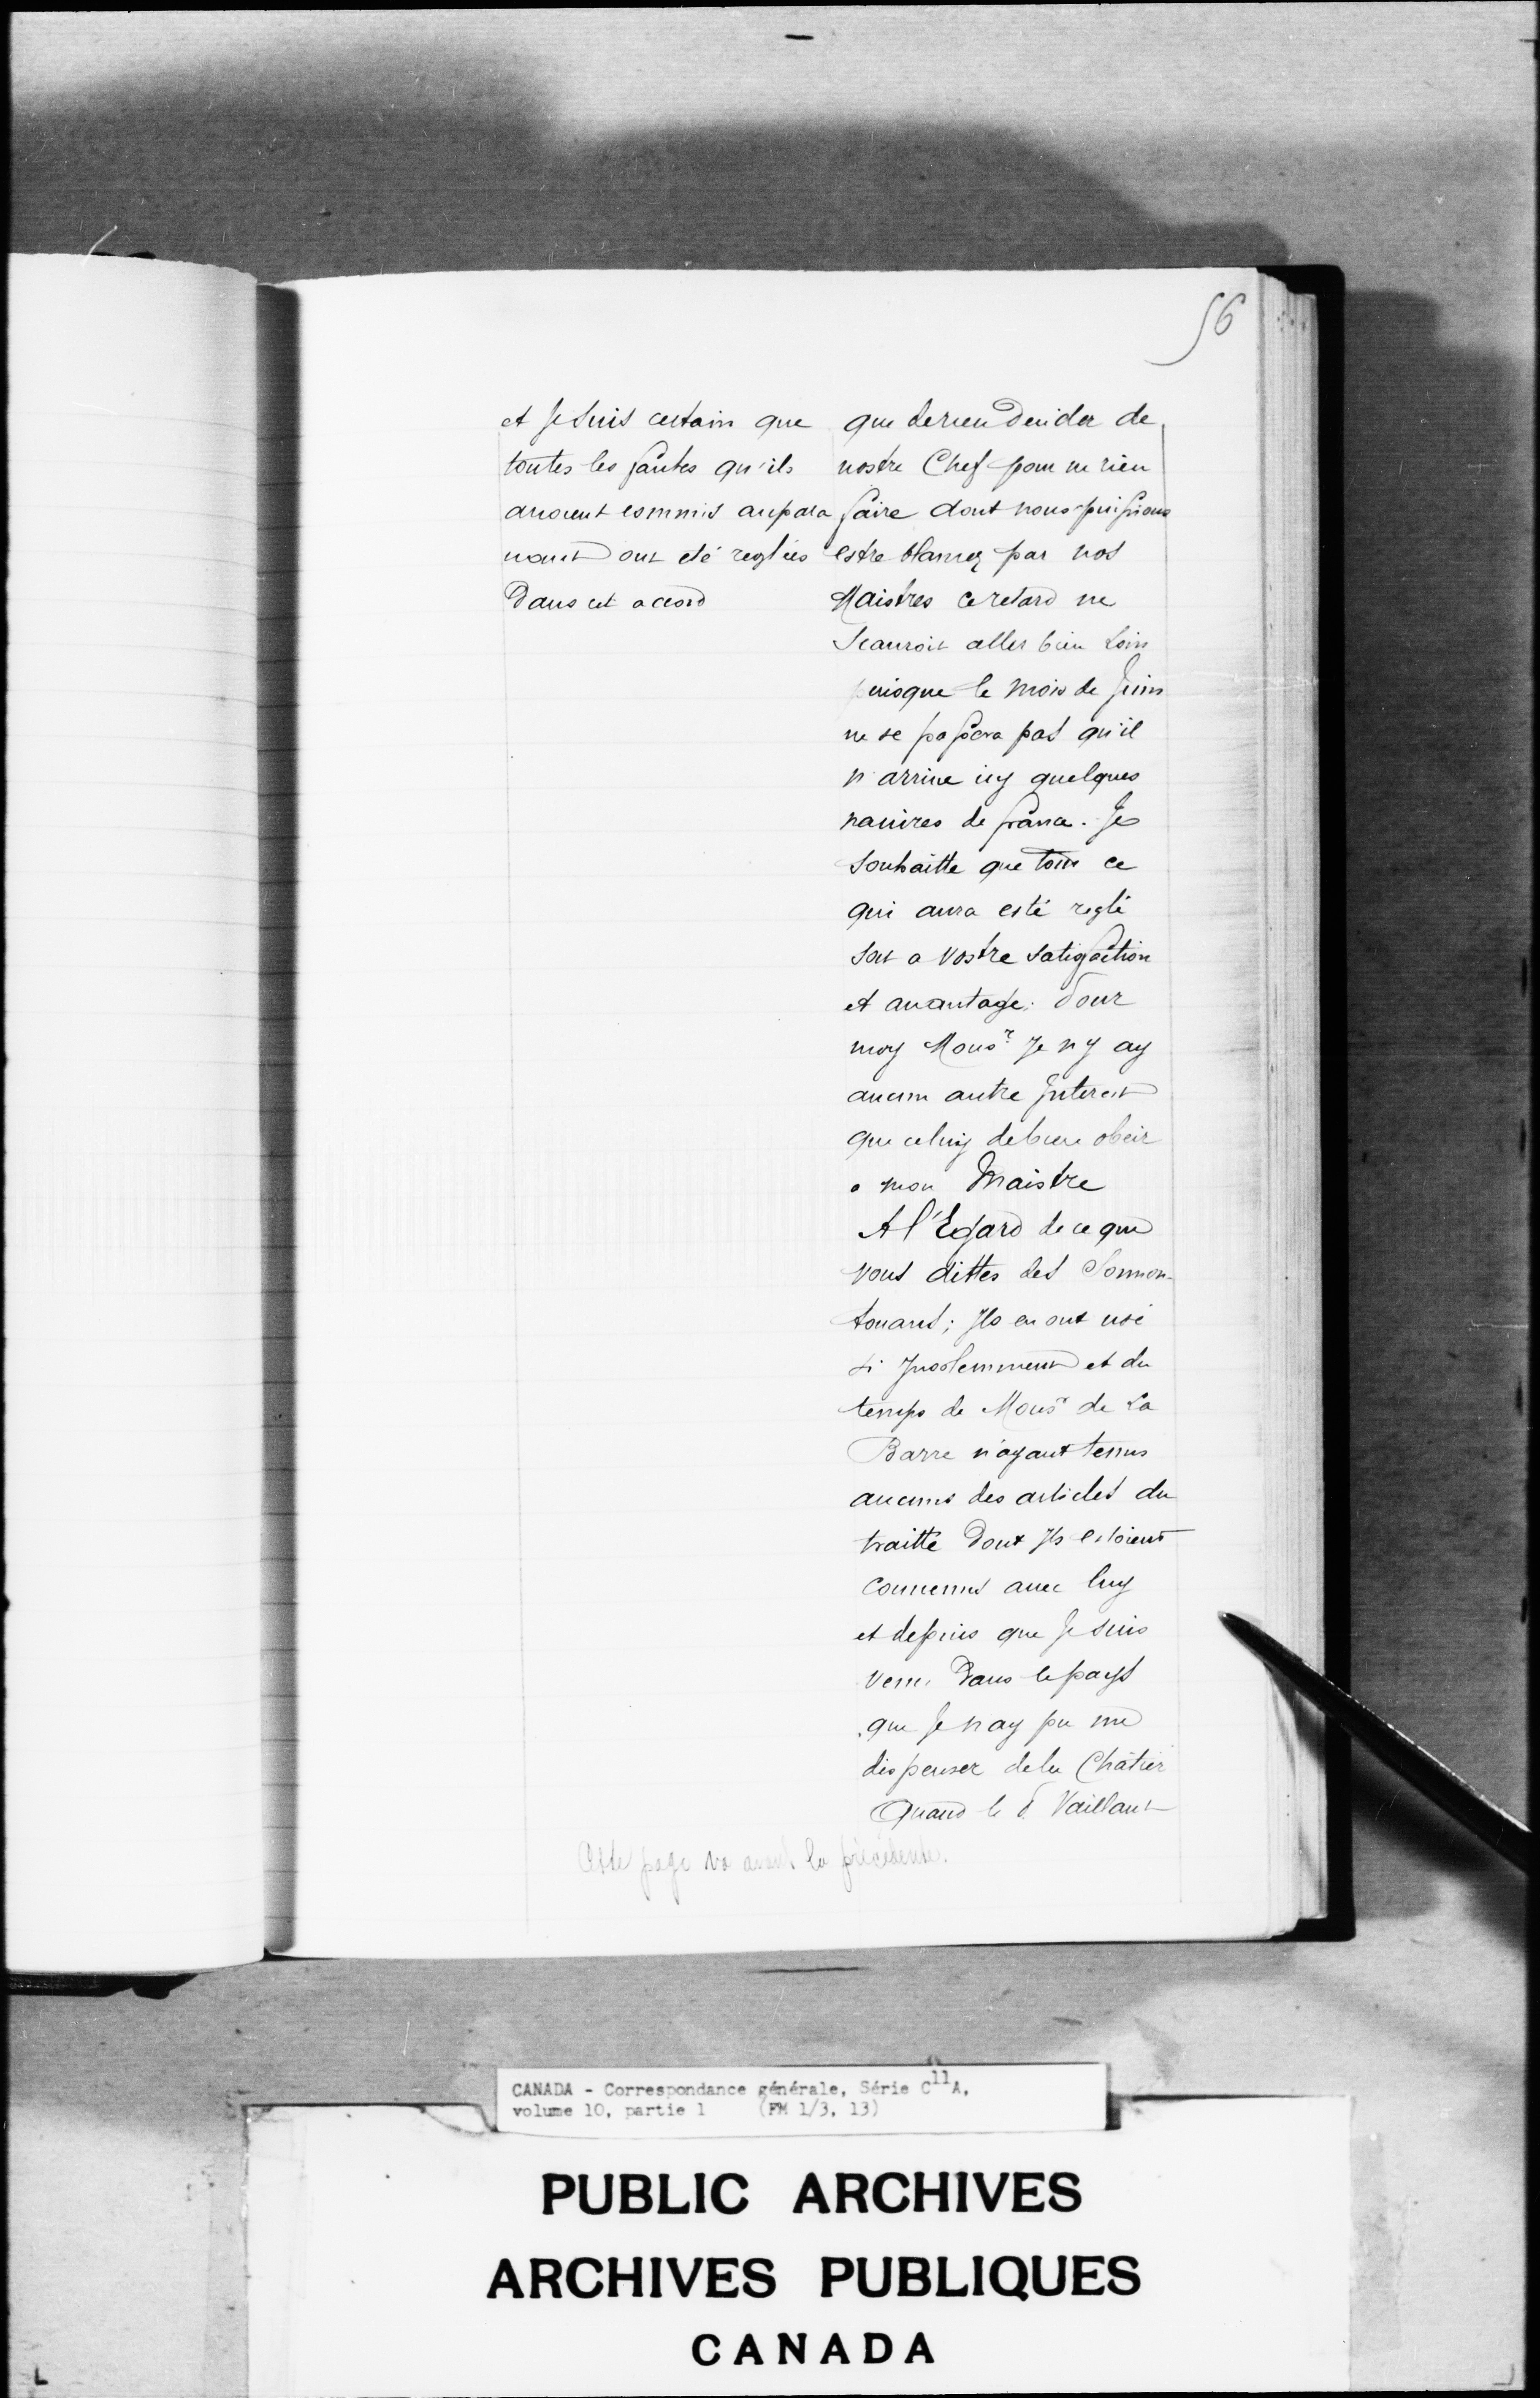 56
et Je suis certain que
toutes les fautes qu'ils
avoient commis aupara
vant ont eté reglées
Dans cet acord
que de rien decider de
nostre Chef pour ne rien
faire dont nous puissions
estre blamez par nos
Maistres ce retard ne
Scauroit aller bien Loin
puisque le mois de Juin
ne se passera pas qu'il
n'arrive icy quelques
navires de france. Je
Souhaitte que tous ce
qui aura esté reglé
soit a vostre satisfaction
et avantage. Pour
moy Monsr. Je n'y ay
aucun autre Interest
que celuy de bien obeir
a mon Maistre
A l'Egard de ce que
vous dittes des Sonnon-
touans; Ils en ont usé
si Insolemment et du
temps de Monsr de La
Barre n'ayant tenus
aucuns des articles du
traitté Dont Ils estoient
Convenus avec luy
et depuis que Je suis
venu Dans le pays
que Je n'ay pu me
dispenser de les Châtier
Quand le S. Vaillant
Cette page va avant la précédente.
CANADA - Correspondance générale, Série C11A,
volume 10, partie 1 (FM 1/3, 13)
PUBLIC ARCHIVES
ARCHIVES PUBLIQUES
CANADA